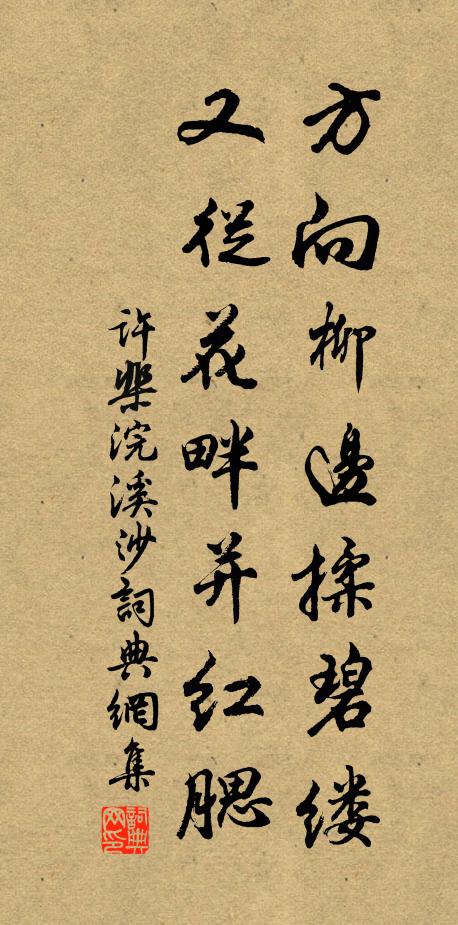 方向柳邊揉碧缕
又從花畔并红腮
許棐浣溪沙詞典網集
詞典网印